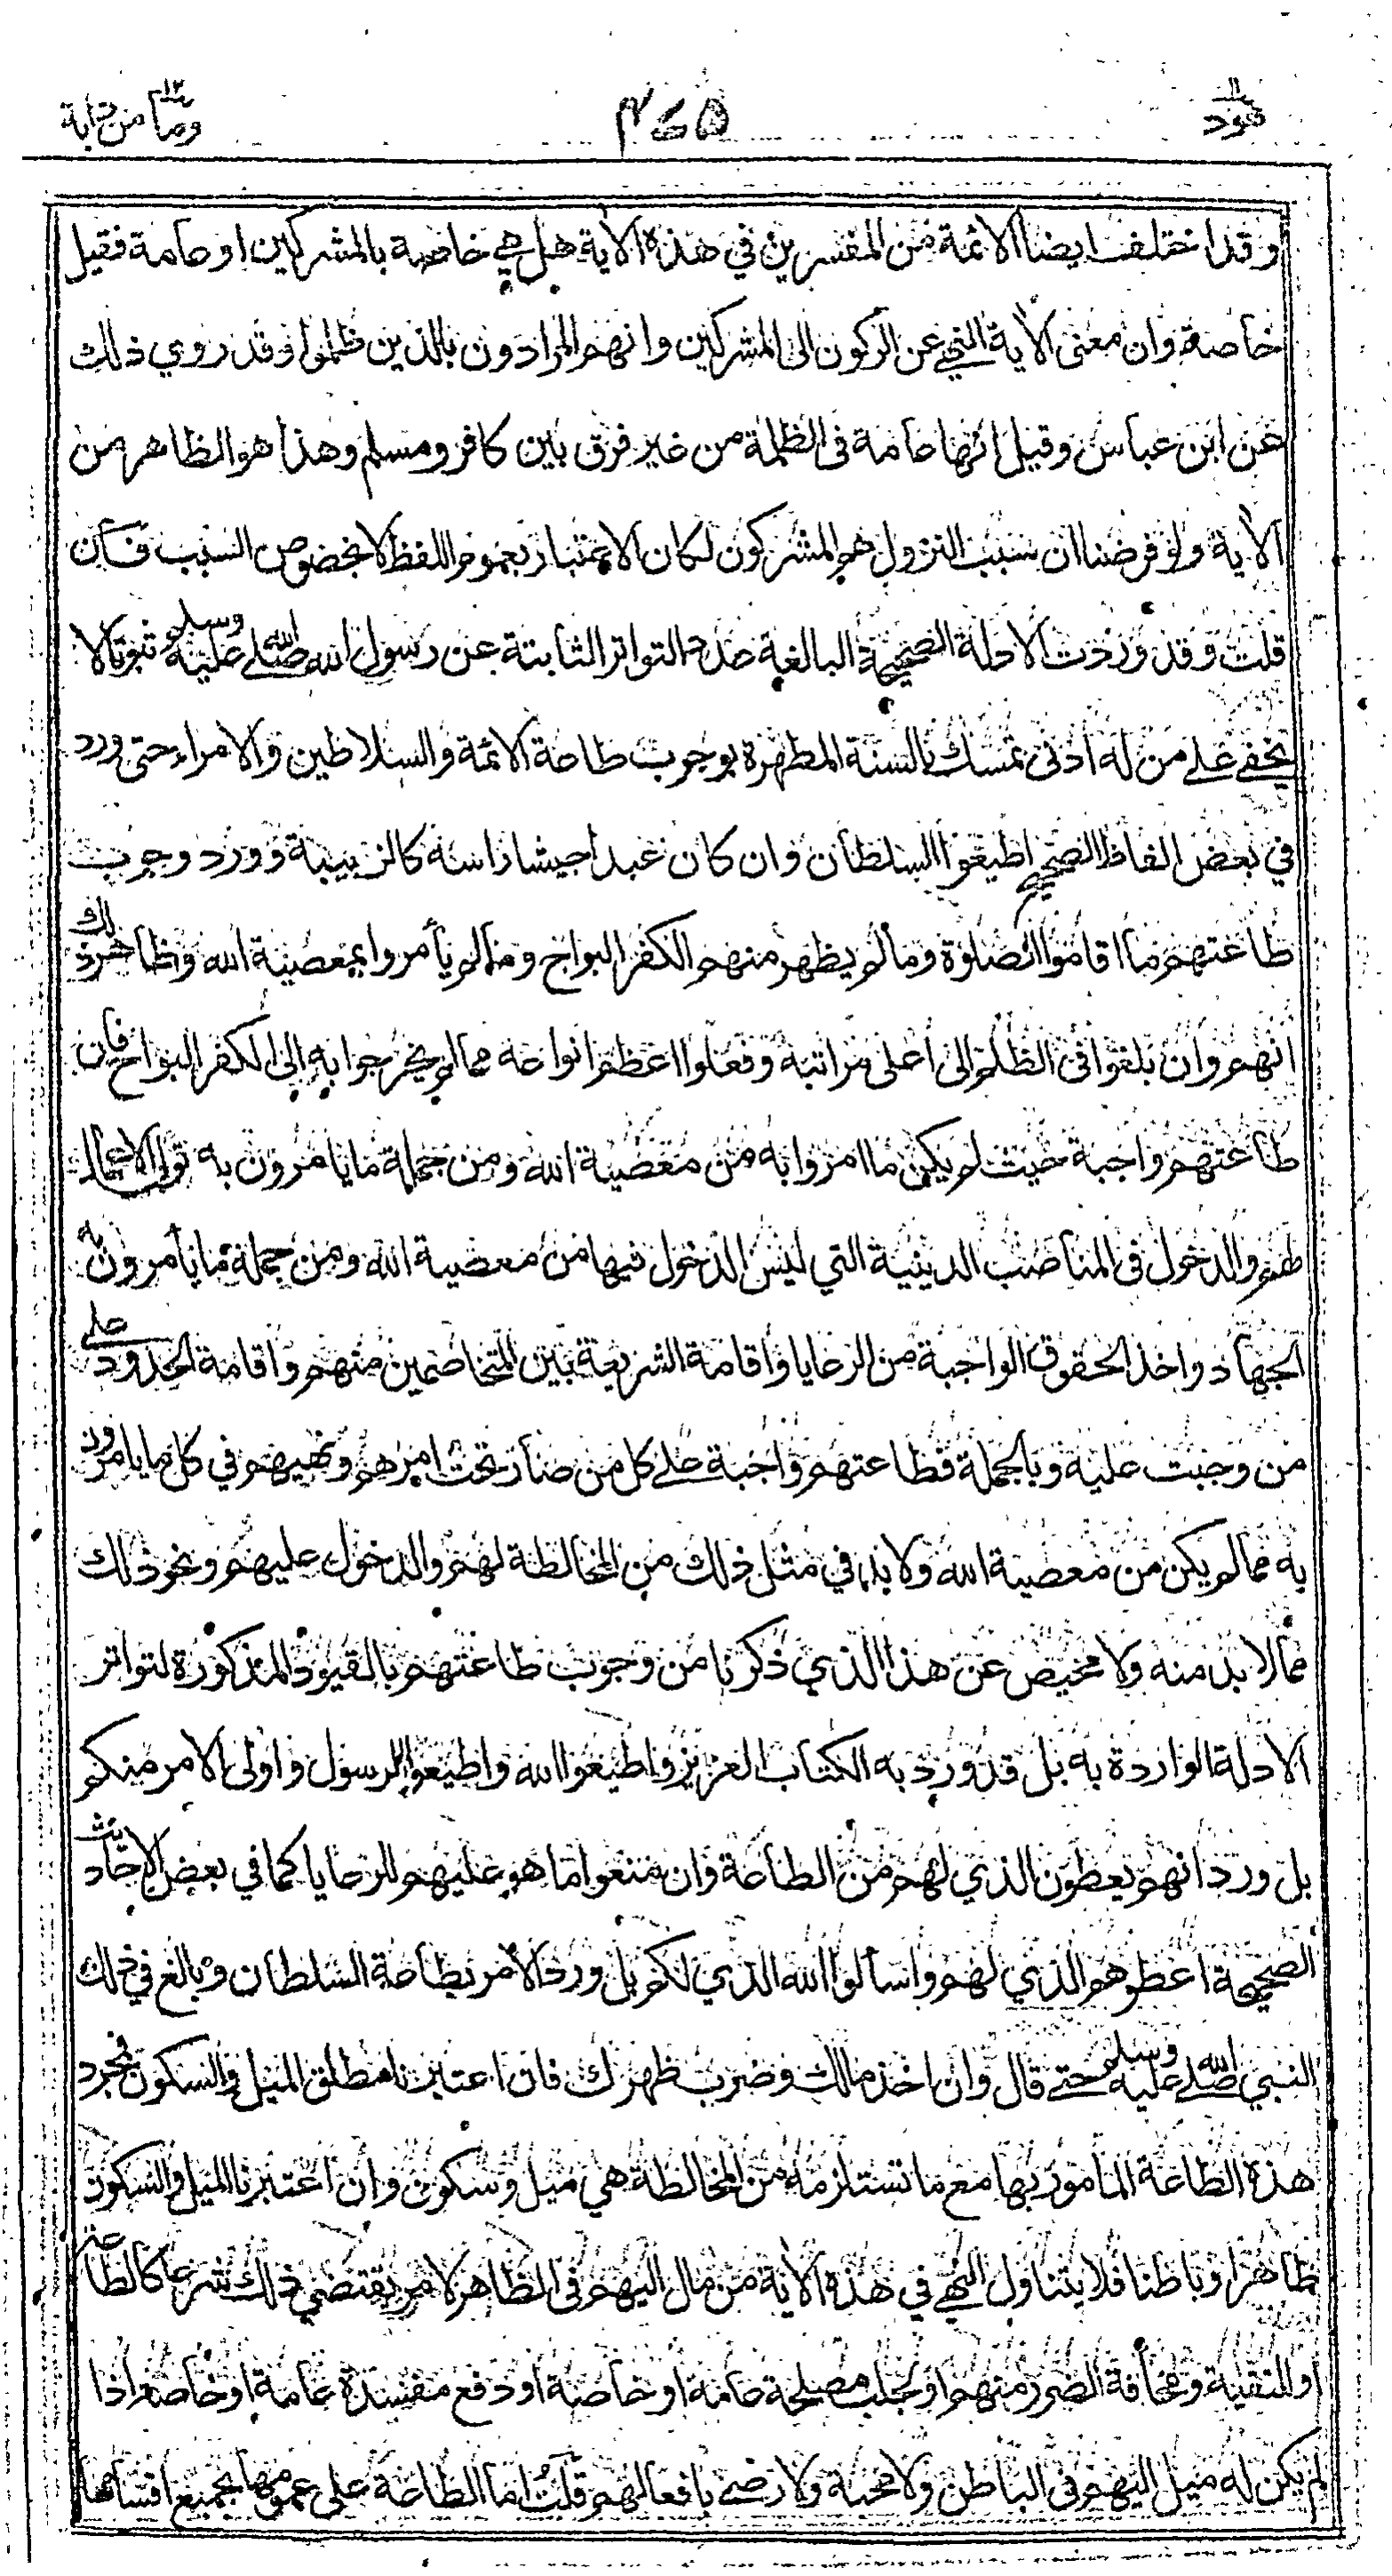 هود ١١
٤٦٥
وما من دابة ١٢
وقد اختلف ايضا الائمة من المفسرين في هذه الاية هل هي خاصة بالمشركين او عامة فقيل
خاصة وان معنى الاية النهي عن الركون الى المشركين وانهم المرادون بالذين ظلموا وقد روي ذلك
عن ابن عباس وقيل انها عامة فى الظلمة من غير فرق بين كافر ومسلم وهذا هو الظاهر من
الاية ولو فرضنا ان سبب النزول هو المشركون لكان الاعتبار بعموم اللفظ لا بخصوص السبب فان
قلت وقد وردت الادلة الصحيحة البالغة حد التواتر الثابتة عن رسول الله صلى الله عليه وسلم ثبوتا لا
يخفى على من له ادنى تمسك بالسنة المطهرة بوجوب طاعة الائمة والسلاطين والامراء حتى ورد
في بعض الفاظ الصحيح اطيعوا السلطان وان كان عبدا حبشيا راسه كالزبيبة وورد وجوب
طاعتهم ما اقاموا الصلوة وما لم يظهر منهم الكفر البواح وما لم يأمروا بمعصية الله وظاهر ذلك
انهم وان بلغوا فى الظلم الى اعلى مراتبه وفعلوا اعظم انواعه مما لم يخرجوا به الى الكفر البواح فان
طاعتهم واجبة حيث لم يكن ما امروا به من معصية الله ومن جملة ما يامرون به تولى الاعمال
لهم والدخول فى المناصب الدينية التي ليس الدخول فيها من معصية الله ومن جملة ما يأمرون به
الجهاد واخذ الحقوق الواجبة من الرعايا واقامة الشريعة بين المتخاصمين منهم واقامة الحدود على
من وجبت عليه وبالجملة فطاعتهم واجبة على كل من صار تحت امرهم ونهيهم في كل ما يامرون
به مما لم يكن من معصية الله ولا بد في مثل ذلك من المخالطة لهم والدخول عليهم ونحو ذلك
مما لا بد منه ولا محيص عن هذا الذي ذكرنا من وجوب طاعتهم بالقيود المذكورة لتواتر
الادلة الواردة به بل قد ورد به الكتاب العزيز واطيعوا الله واطيعوا الرسول واولى الامر منكم
بل ورد انهم يعطون الذي لهم من الطاعة وان منعوا ما هو عليهم للرعايا كما في بعض الاحاديث
الصحيحة اعطوهم الذي لهم واسألوا الله الذي لكم بل ورد الامر بطاعة السلطان وبالغ في ذلك
النبي صلى الله عليه وسلم حتى قال وان اخذ مالك وضرب ظهرك فان اعتبرنا مطلق الميل والسكون فمجرد
هذه الطاعة المأمور بها مع ما تستلزمه من المخالطة هي ميل وسكون وان اعتبرنا الميل والسكون
ظاهرا وباطنا فلا يتناول النهي في هذه الاية من مال اليهم فى الظاهر لامر يقتضي ذلك شرعا كالطاعة
او للتقية ومخافة الضرر منهم او لجلب مصلحة عامة او خاصة او دفع مفسدة عامة او خاصة اذا
لم يكن له ميل اليهم فى الباطن ولا محبة ولا رضى بافعالهم قلت اما الطاعة على عمومها بجميع اقسامها